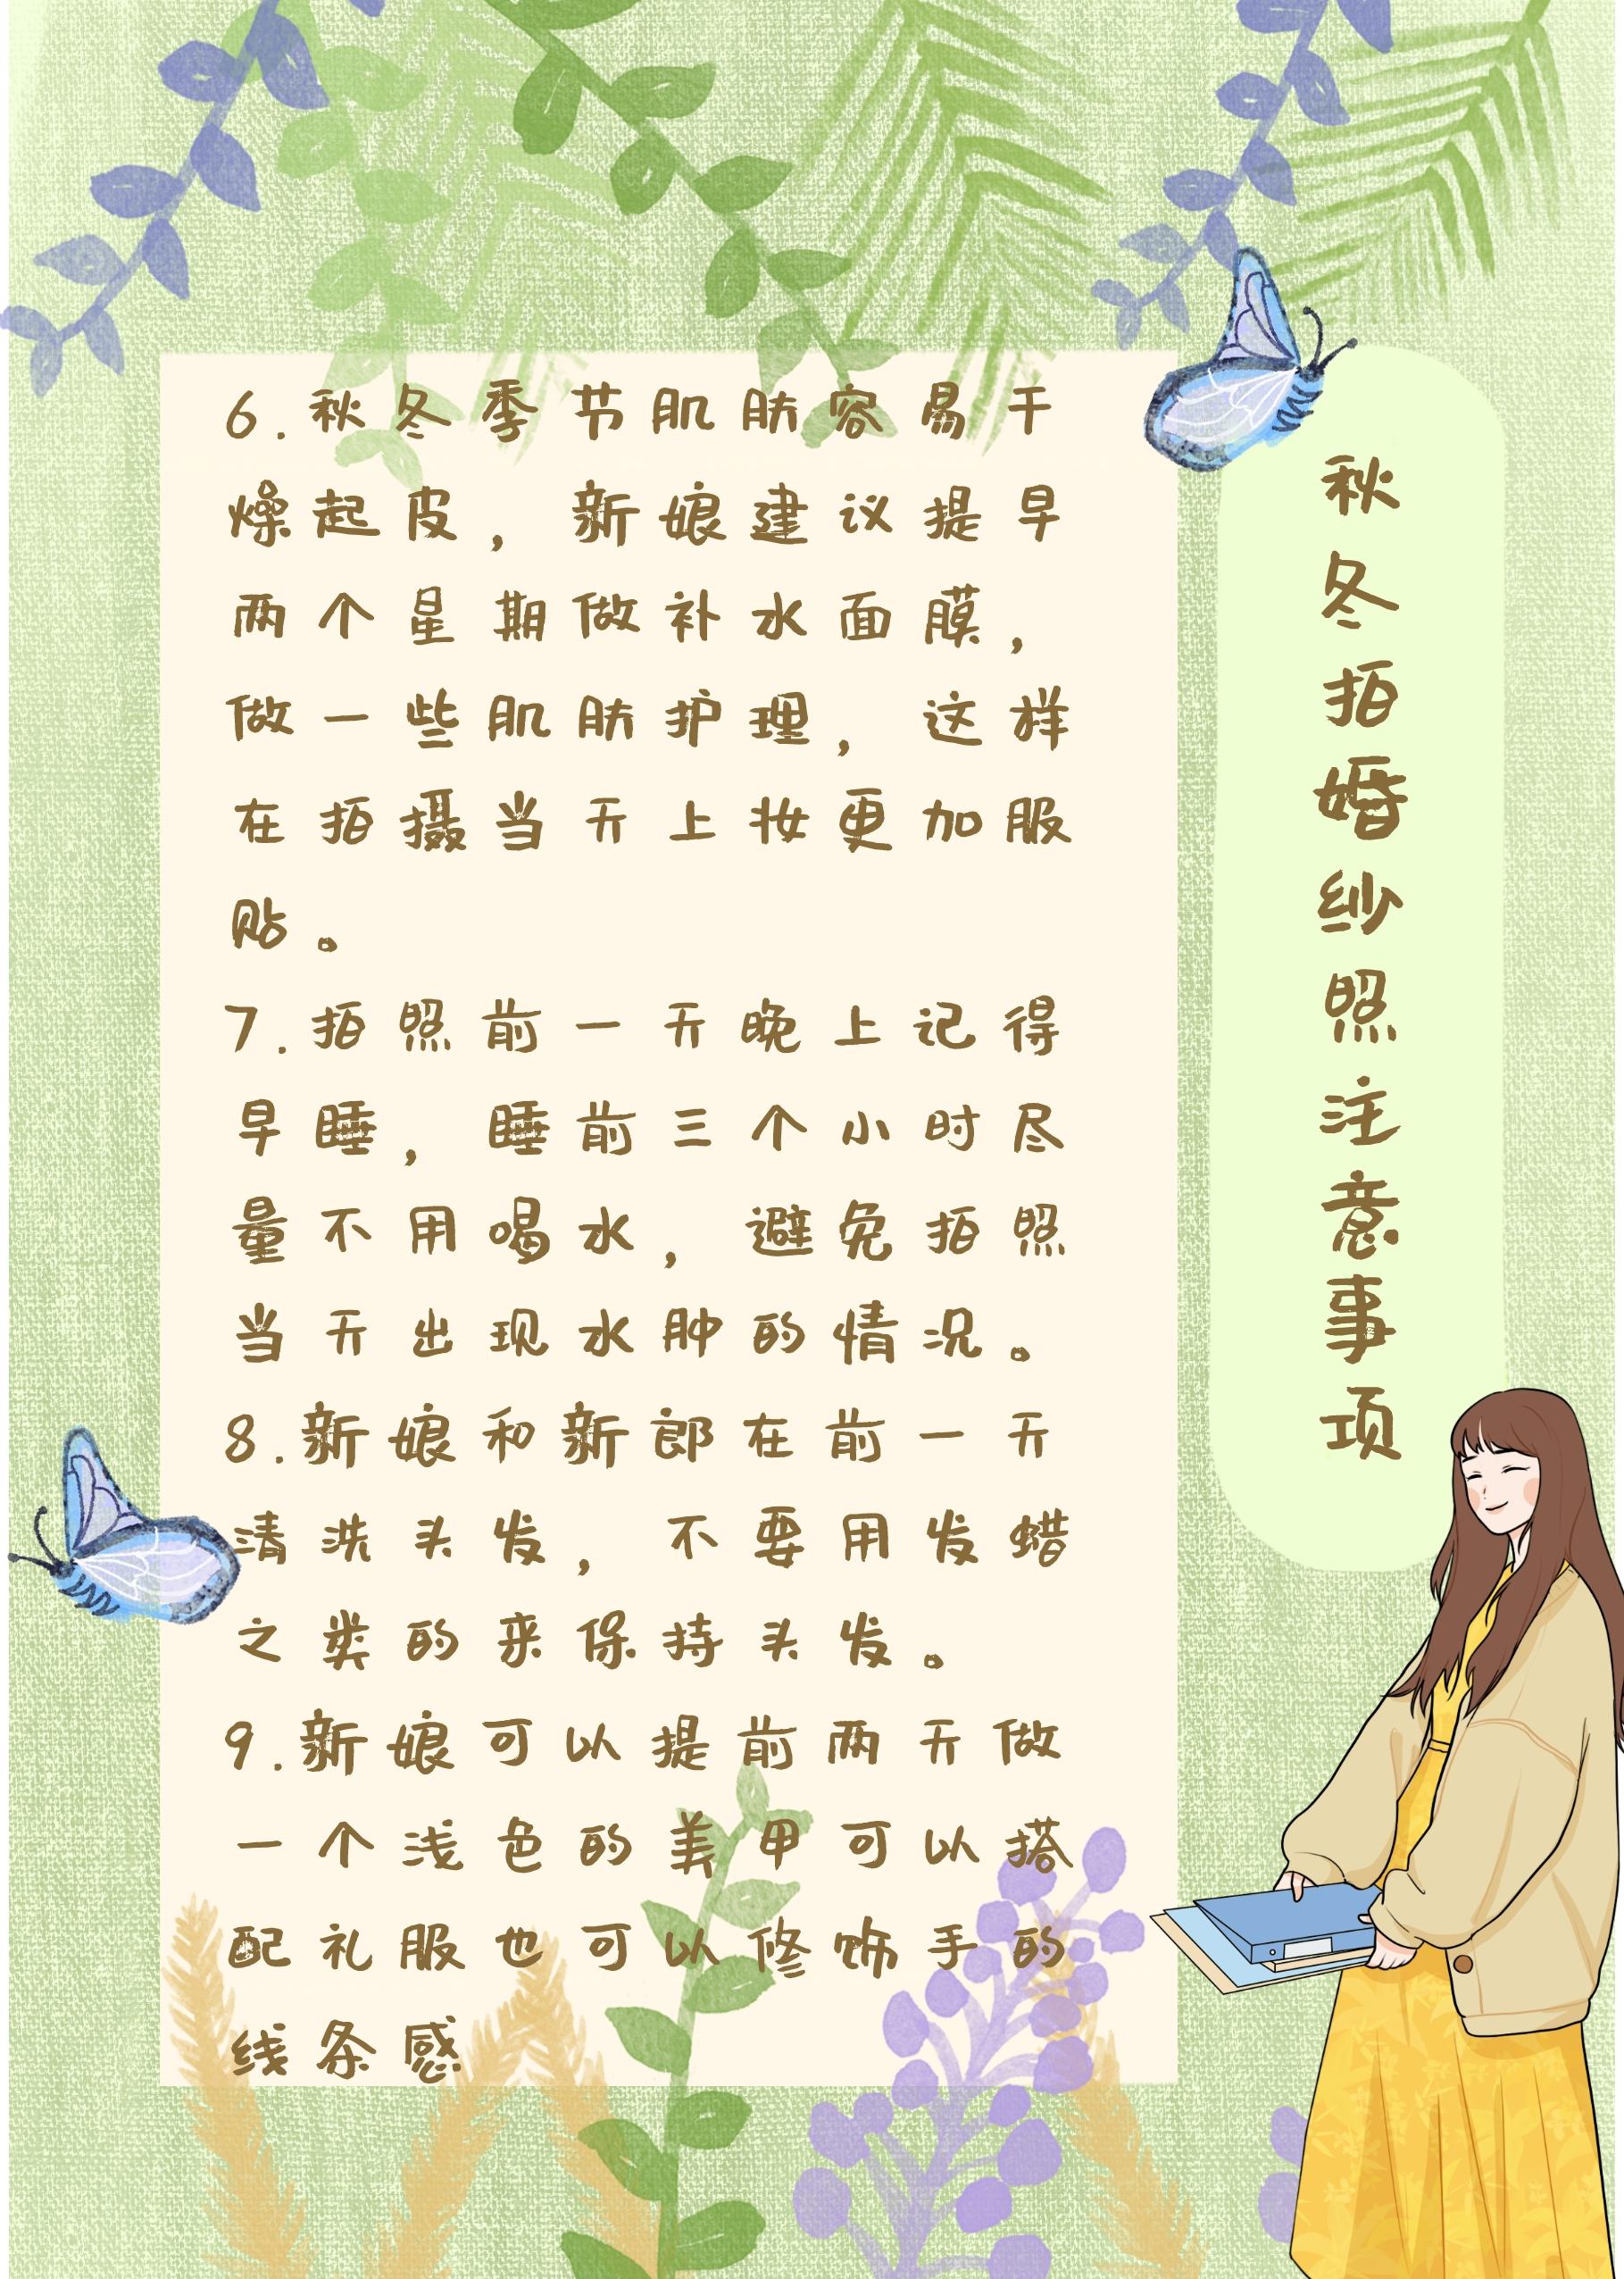 秋冬拍婚纱照注意事项
6.秋冬季节肌肤容易干
燥起皮，新娘建议提早
两个星期做补水面膜，
做一些肌肤护理，这样
在拍摄当天上妆更加服
贴。
7.拍照前一天晚上记得
早睡，睡前三个小时尽
量不用喝水，避免拍照
当天出现水肿的情况。
8.新娘和新郎在前一天
清洗头发，不要用发蜡
之类的来保持头发。
9.新娘可以提前两天做
一个浅色的美甲可以搭
配礼服也可以修饰手的
线条感